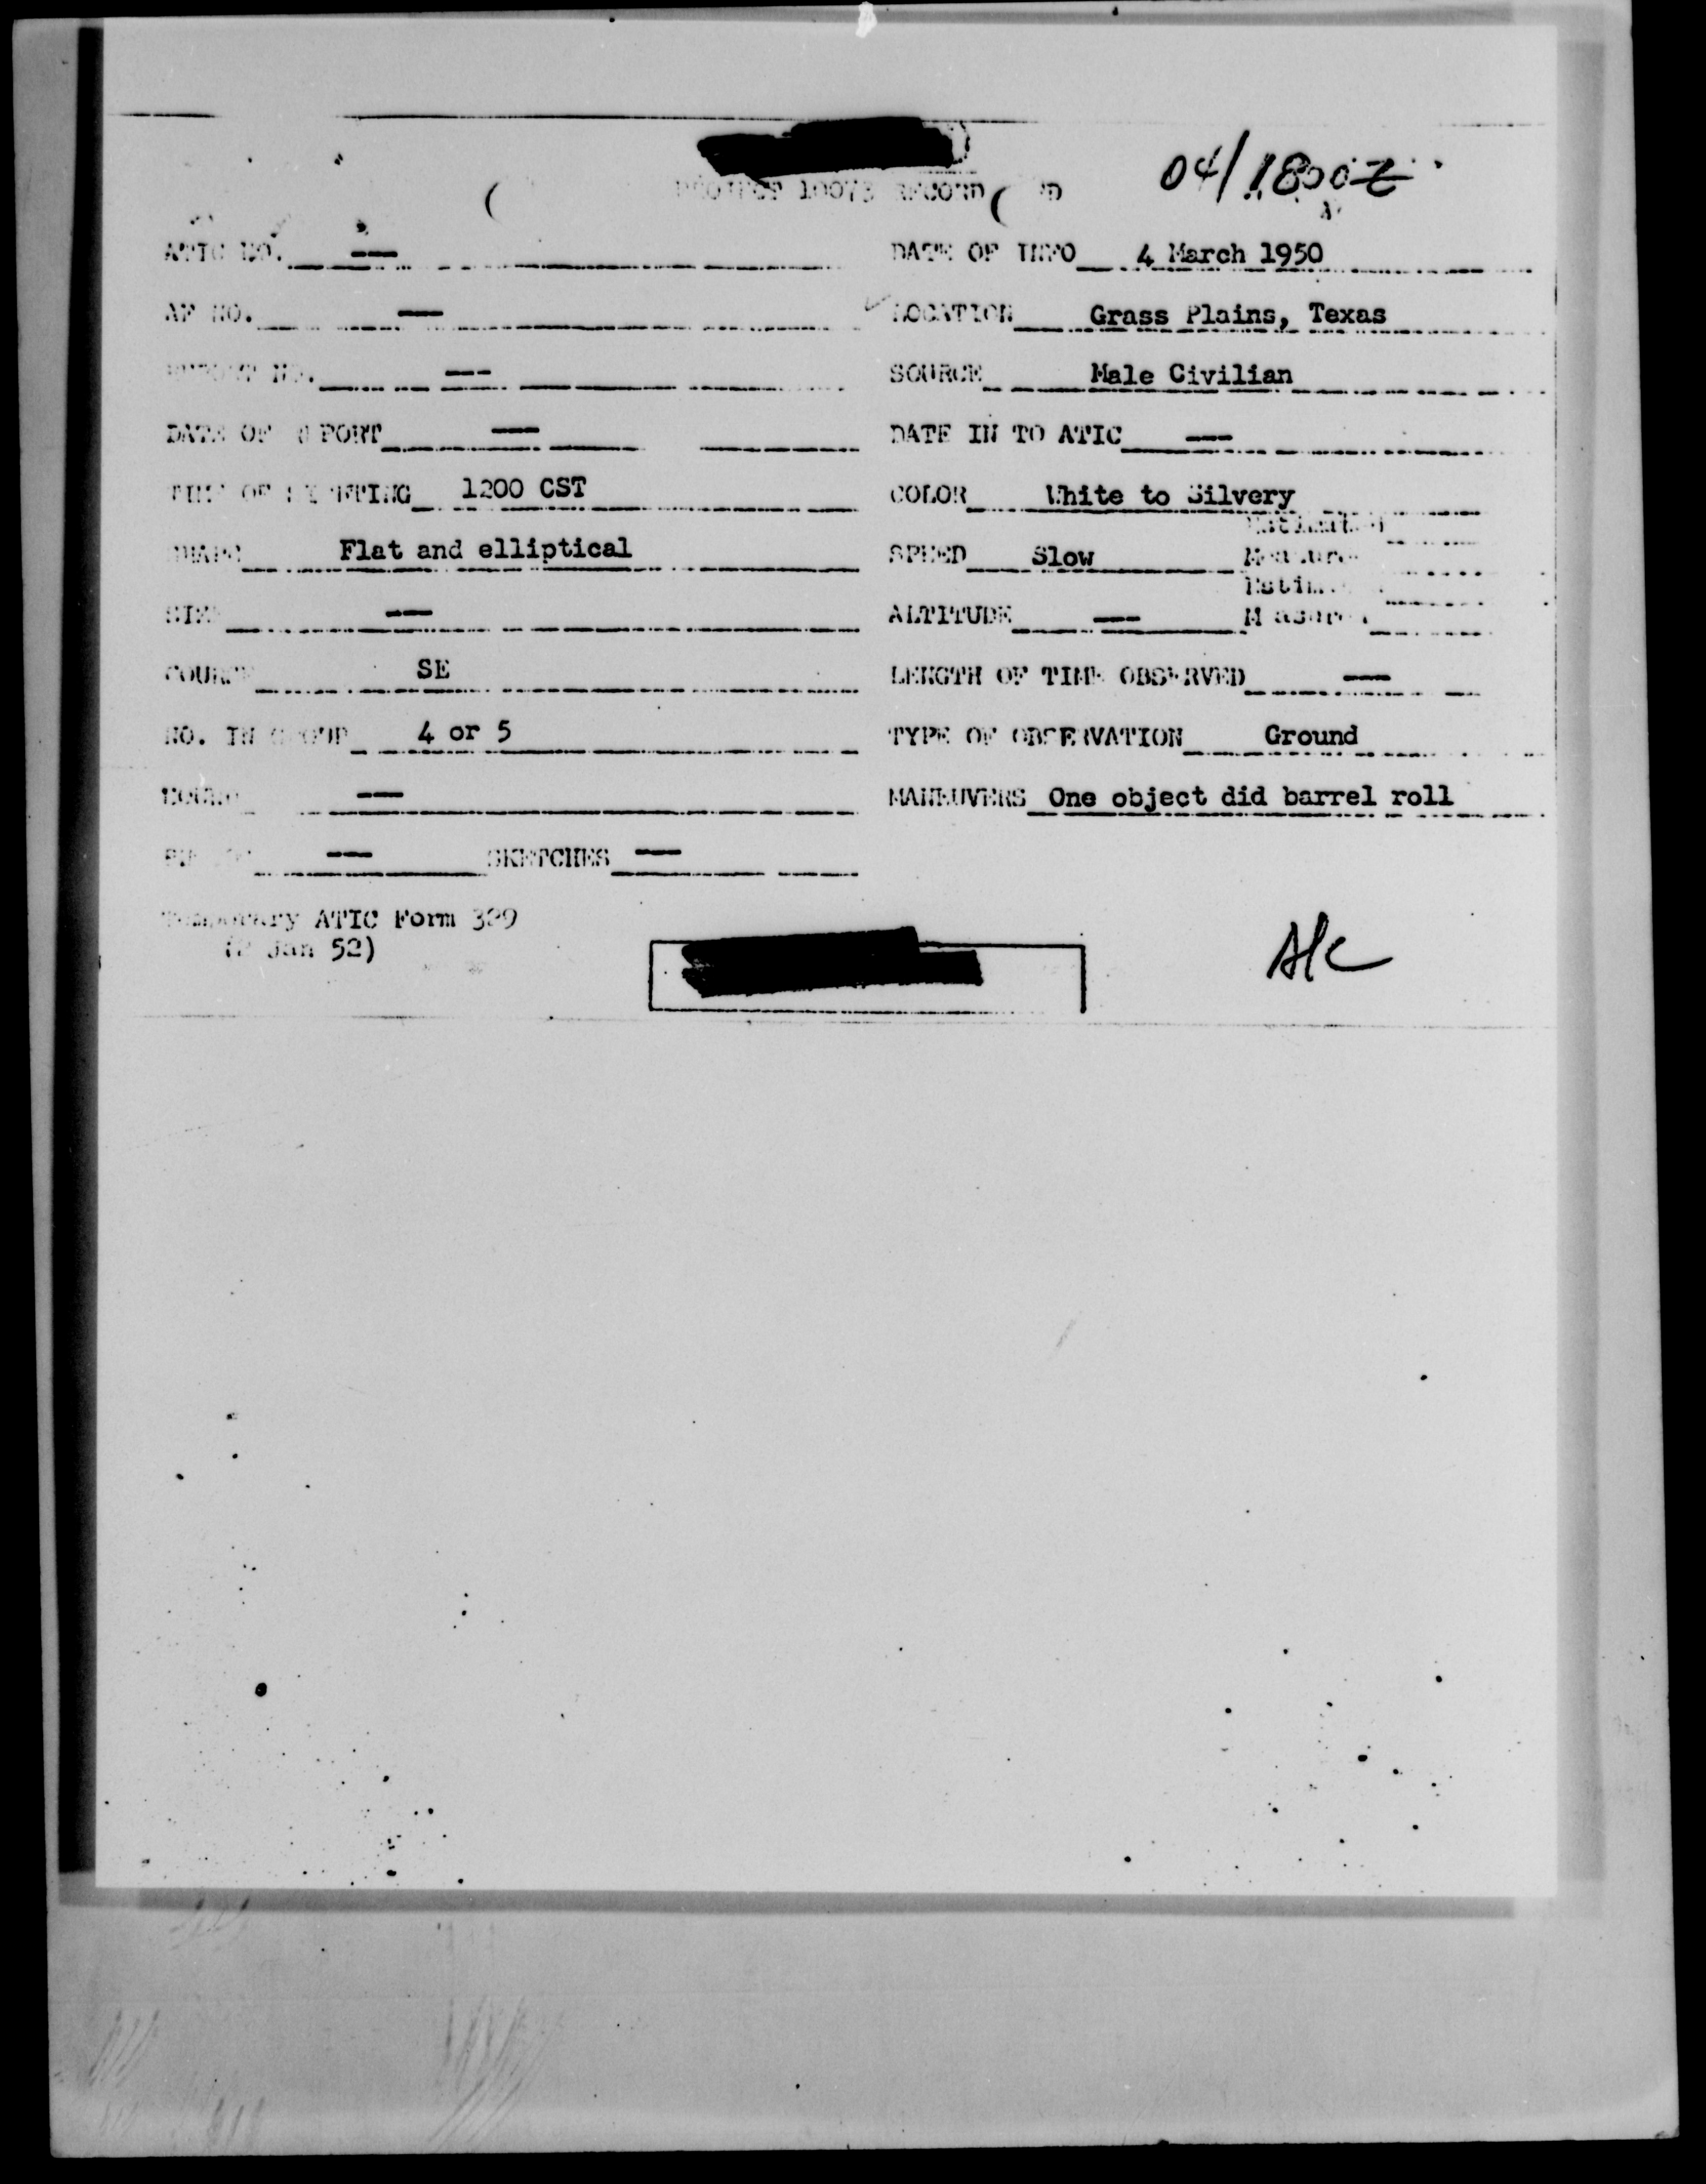 04/1800Z
10073 RECORD
ATIC NO. — DATE OF INFO 4 March 1950
AF NO. — LOCATION Grass Plains, Texas
NO. — SOURCE Male Civilian
DATE OF PORT — DATE IN TO ATIC —
OF 1200 CST COLOR White to Silvery
Flat and elliptical SPEED Slow
— ALTITUDE —
COURSE SE LENGTH OF TIME OBSERVED —
NO. IN GROUP 4 or 5 TYPE OF OBSERVATION Ground
— MANEUVERS One object did barrel roll
— SKETCHES —
Temporary ATIC Form 329
(2 Jan 52)